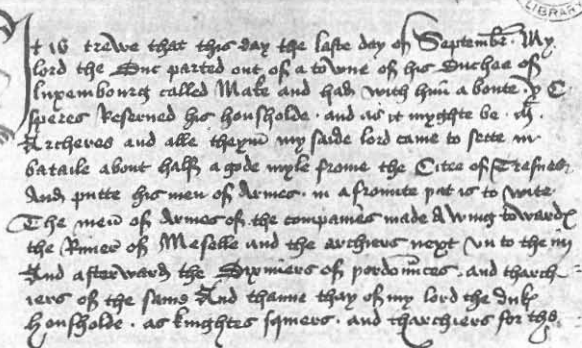 LIBRARY
It is trewe that this day the laste day of Septembr. My
lord the Duc parted out of a towne of his Duchee of
luxembourg called Make and had with him a boute
speres Reserved his housholde . and as it myghte be . iij.
Archeres and alle theym my saide lord came to sette in
bataile about half a gode myle frome the Citee of Treues
And putte his men of Armes . in a frounte þat is to wite
The men of Armes of the companies made A wing toward
the Riuer of Meselle and the archiers next vn to them
And afterward the Dixiniers of pordonnces . and tharch
iers of the same And thanne thay of my lord the duks
housholde . as knightes squiers . and tharchiers for the